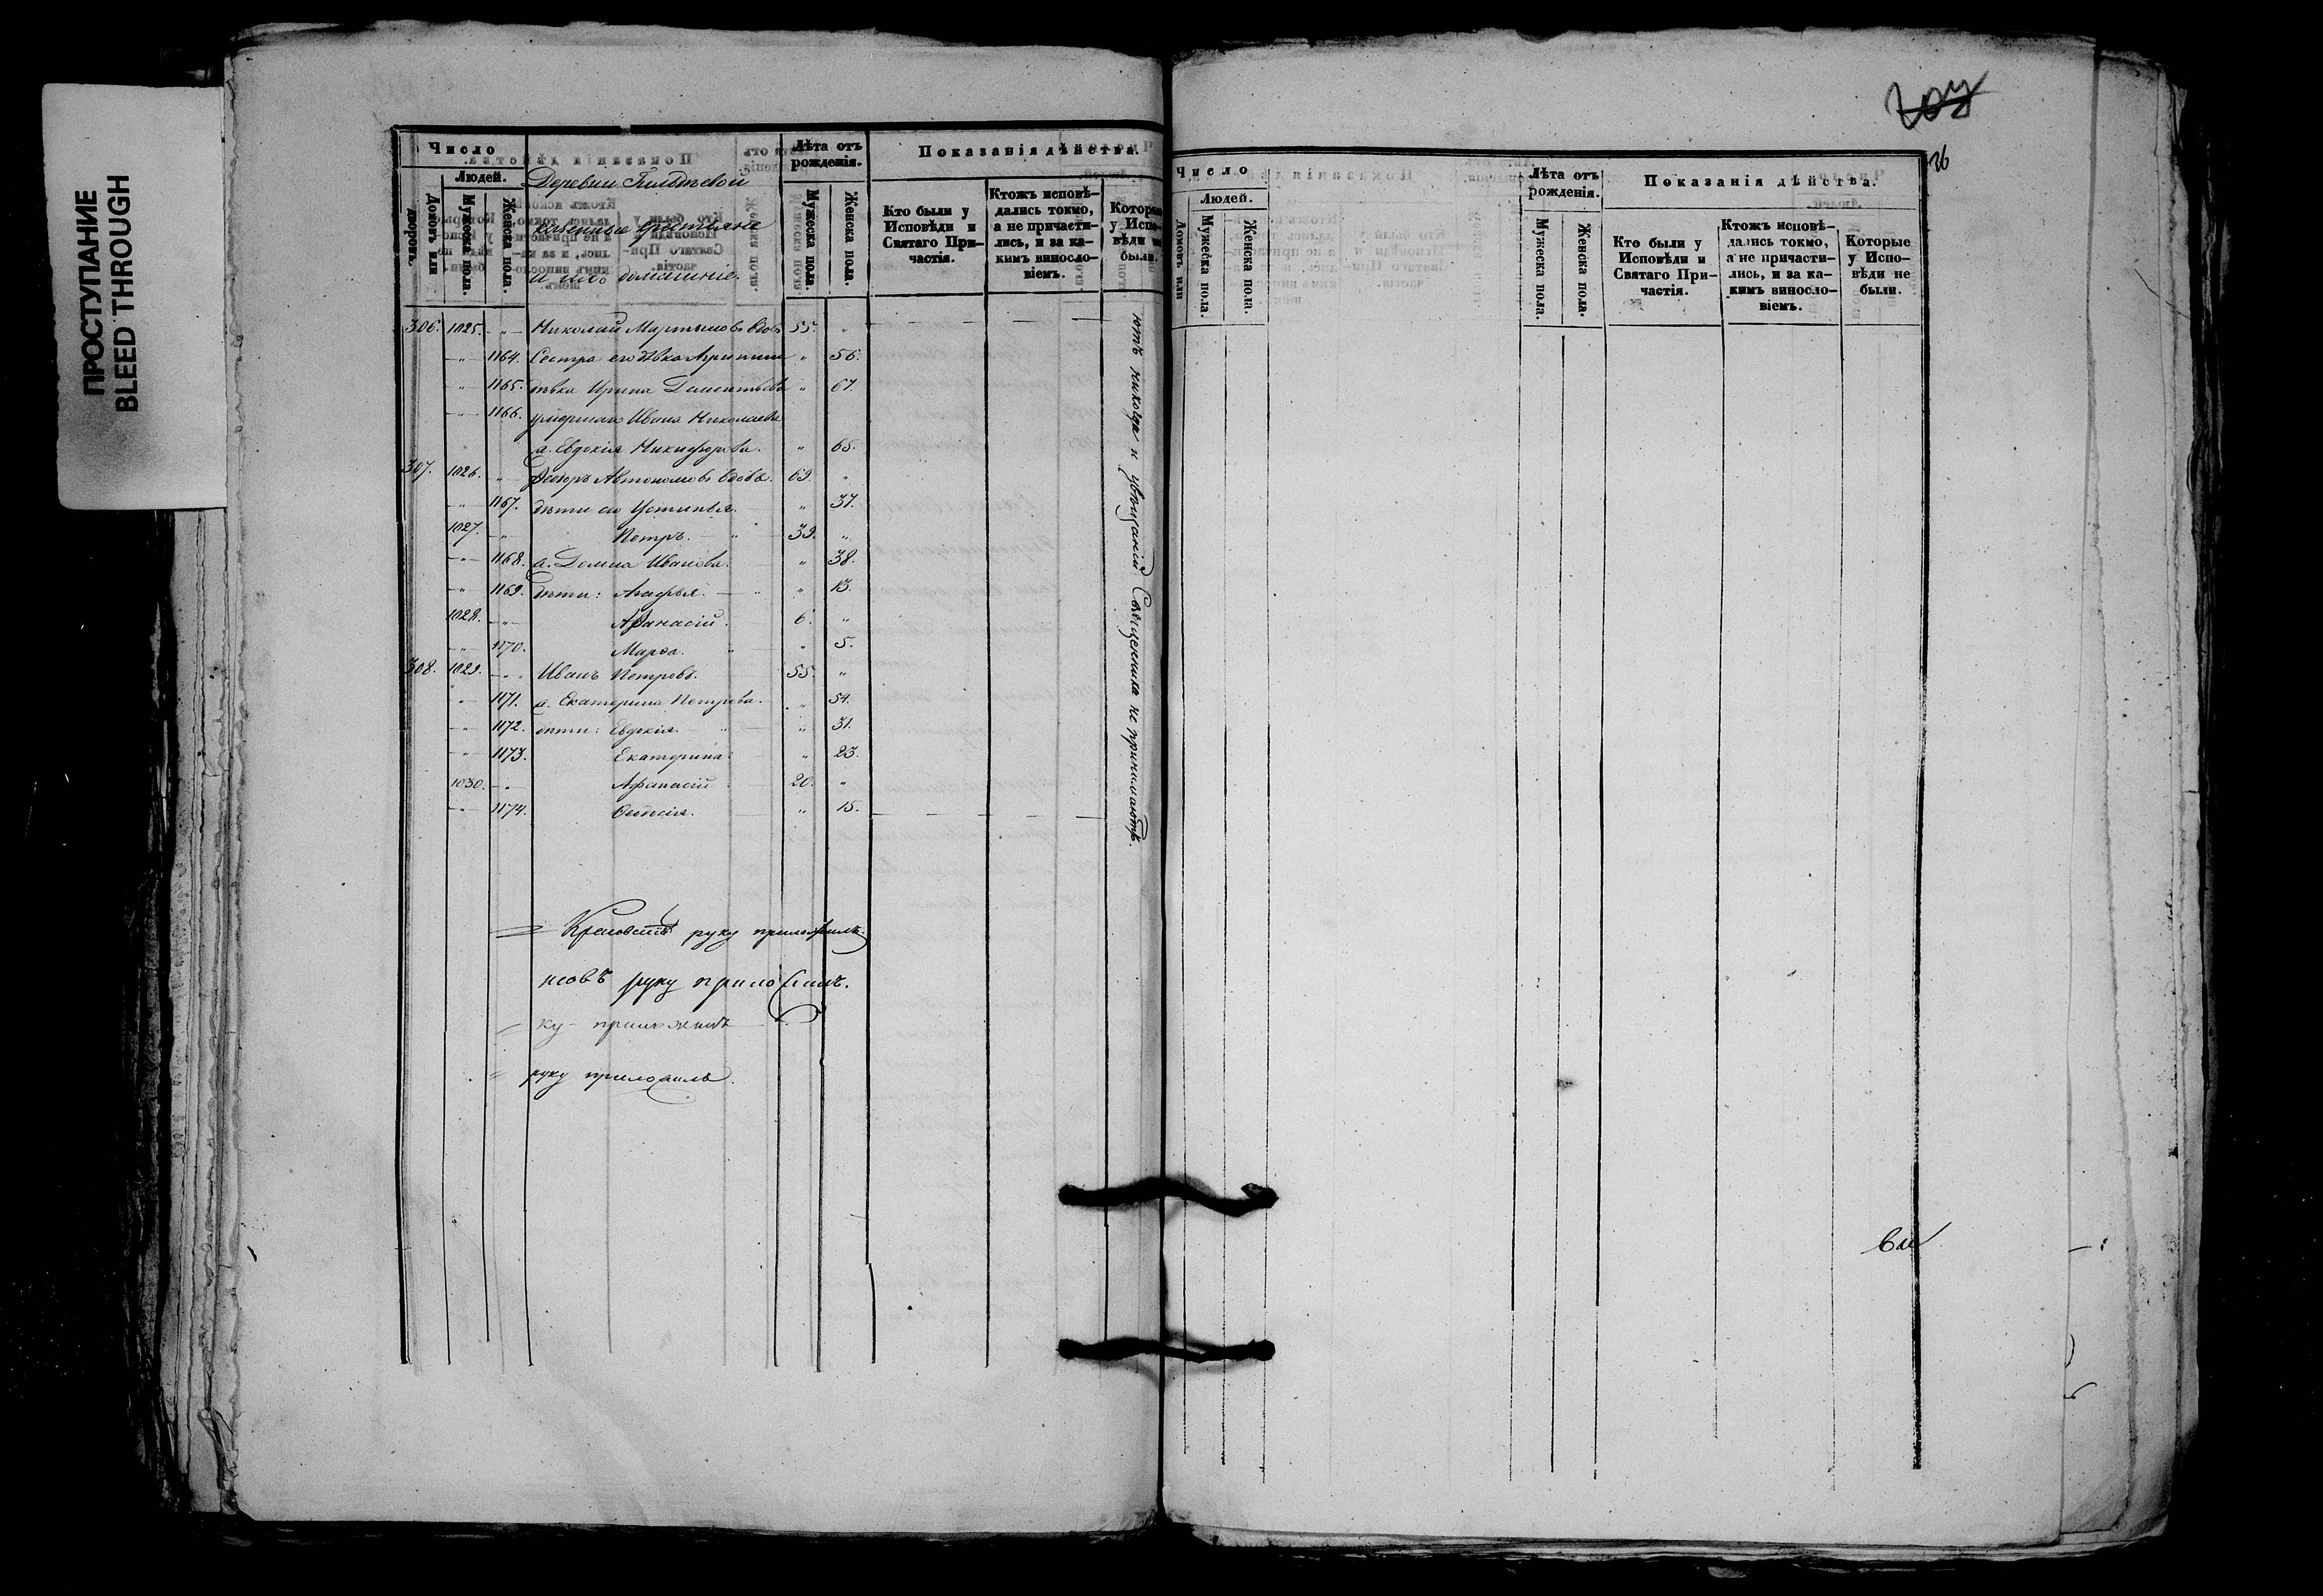 ПРОСТУПАНИЕ
BLEED THROUGH
Число
Людей.
Домовъ или дворовъ.
Мужеска пола.
Женска пола.
Деревни
казенные крестьяне
и ихъ домашніе.
Лѣта отъ рожденія.
Мужеска пола.
Женска пола.
Показанія дѣйства.
Кто были у Исповѣди и Святаго Причастія.
Ктожъ исповѣдались токмо, а не причастились, и за какимъ винословіемъ.
Которые у Исповѣди не были.
306. 1025. " Николай Мартыновъ вдовъ 55. "
" 1164. Сестра его дѣвка " 56.
" 1165. дѣвка Ирина " 67.
" 1166. умершаго Ивана Николаева
ж. Евдокія Никифорова. " 65.
307. 1026. " Ѳедоръ Автономовъ вдовъ. 69. "
" 1167. дѣти его Устинья. " 37.
1027. " Петръ. " 39. "
" 1168. ж. Домна Иванова. " 38.
" 1169. дѣти: Агафья. " " 13.
1028. " Афанасій. 6. "
" 1170. Марѳа. " " 5.
308. 1029. " Иванъ Петровъ. 55. "
" 1171. ж. Екатерина Петрова. " 54.
" 1172. дѣти: Евдокія. " " 31.
" 1173. Екатерина. " 23.
1030. " Афанасій 20. "
" 1174. Ѳедосія. " 15.
ютъ никогда и увѣщаній Священника не принимаютъ.
руку приложилъ.
новъ руку приложилъ.
ку приложилъ
руку приложилъ.
26
Число
Людей.
Домовъ или
Мужеска пола.
Женска пола.
Лѣта отъ рожденія.
Мужеска пола.
Женска пола.
Показанія дѣйства.
Кто были у Исповѣди и Святаго Причастія.
Ктожъ исповѣдались токмо, а не причастились, и за какимъ винословіемъ.
Которые у Исповѣди не были.